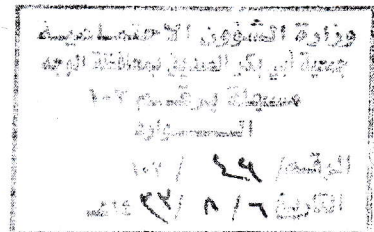 وزارة الشؤون الاجتماعية
جمعية أبي بكر الصديق بمحافظة الوجه
مسجلة برقم ١٠٢
الصادر
الرقم/ ٤٩ / ١٠٢
التاريخ ٦ / ٨ /